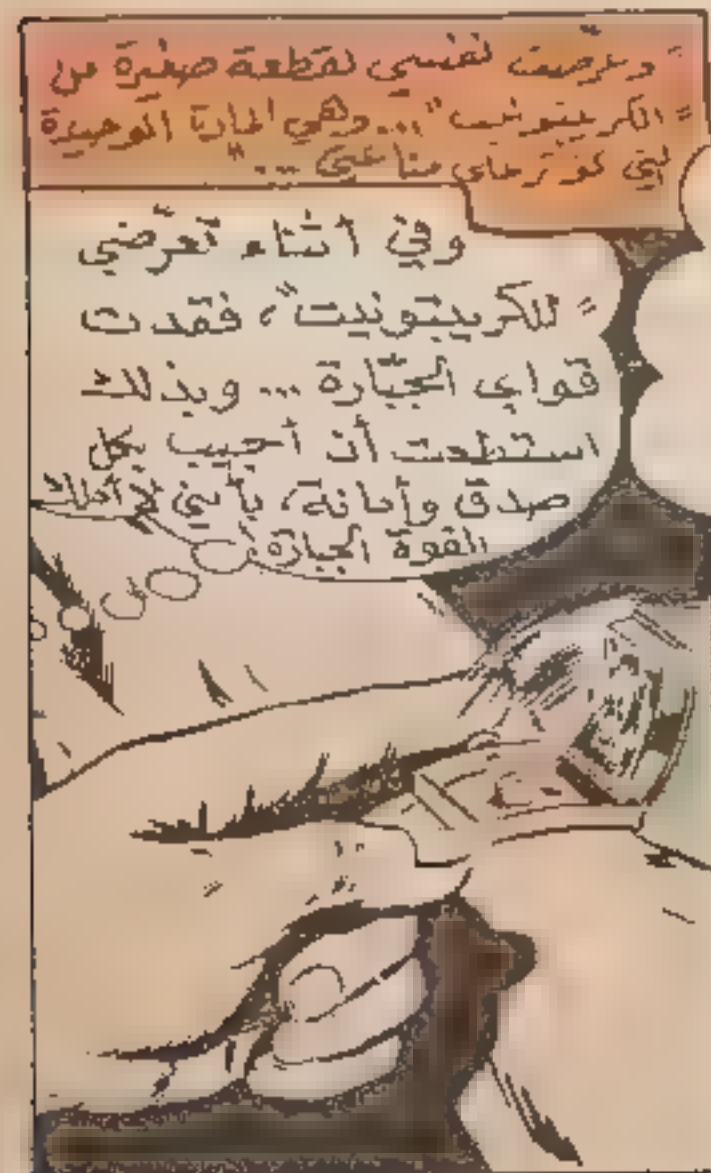 " وعرضت نفسي لقطعة صغيرة من
" الكريبتونيت "... وهي المادة الوحيدة
التي تؤثر على مناعتي ... "
وفي أثناء تعرّضي
" للكريبتونيت "، فقدت
قواي الجبّارة ... وبذلك
استطعت أن أجيب بكل
صدق وأمانة، بأنني لا أملك
القوة الجبارة!